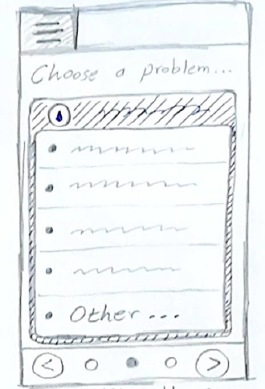 Choose a problem...
Other...